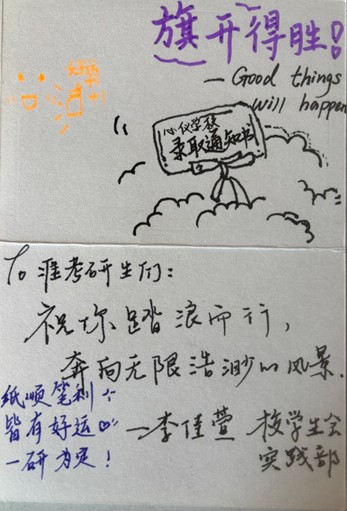 旗开得胜!
— Good things
will happen
心仪学校
录取通知书
To 准考研生们:
祝你踏浪而行,
奔向无限浩渺的风景.
纸顺笔利
皆有好运
一研为定!
—李佳萱 校学生会
实践部